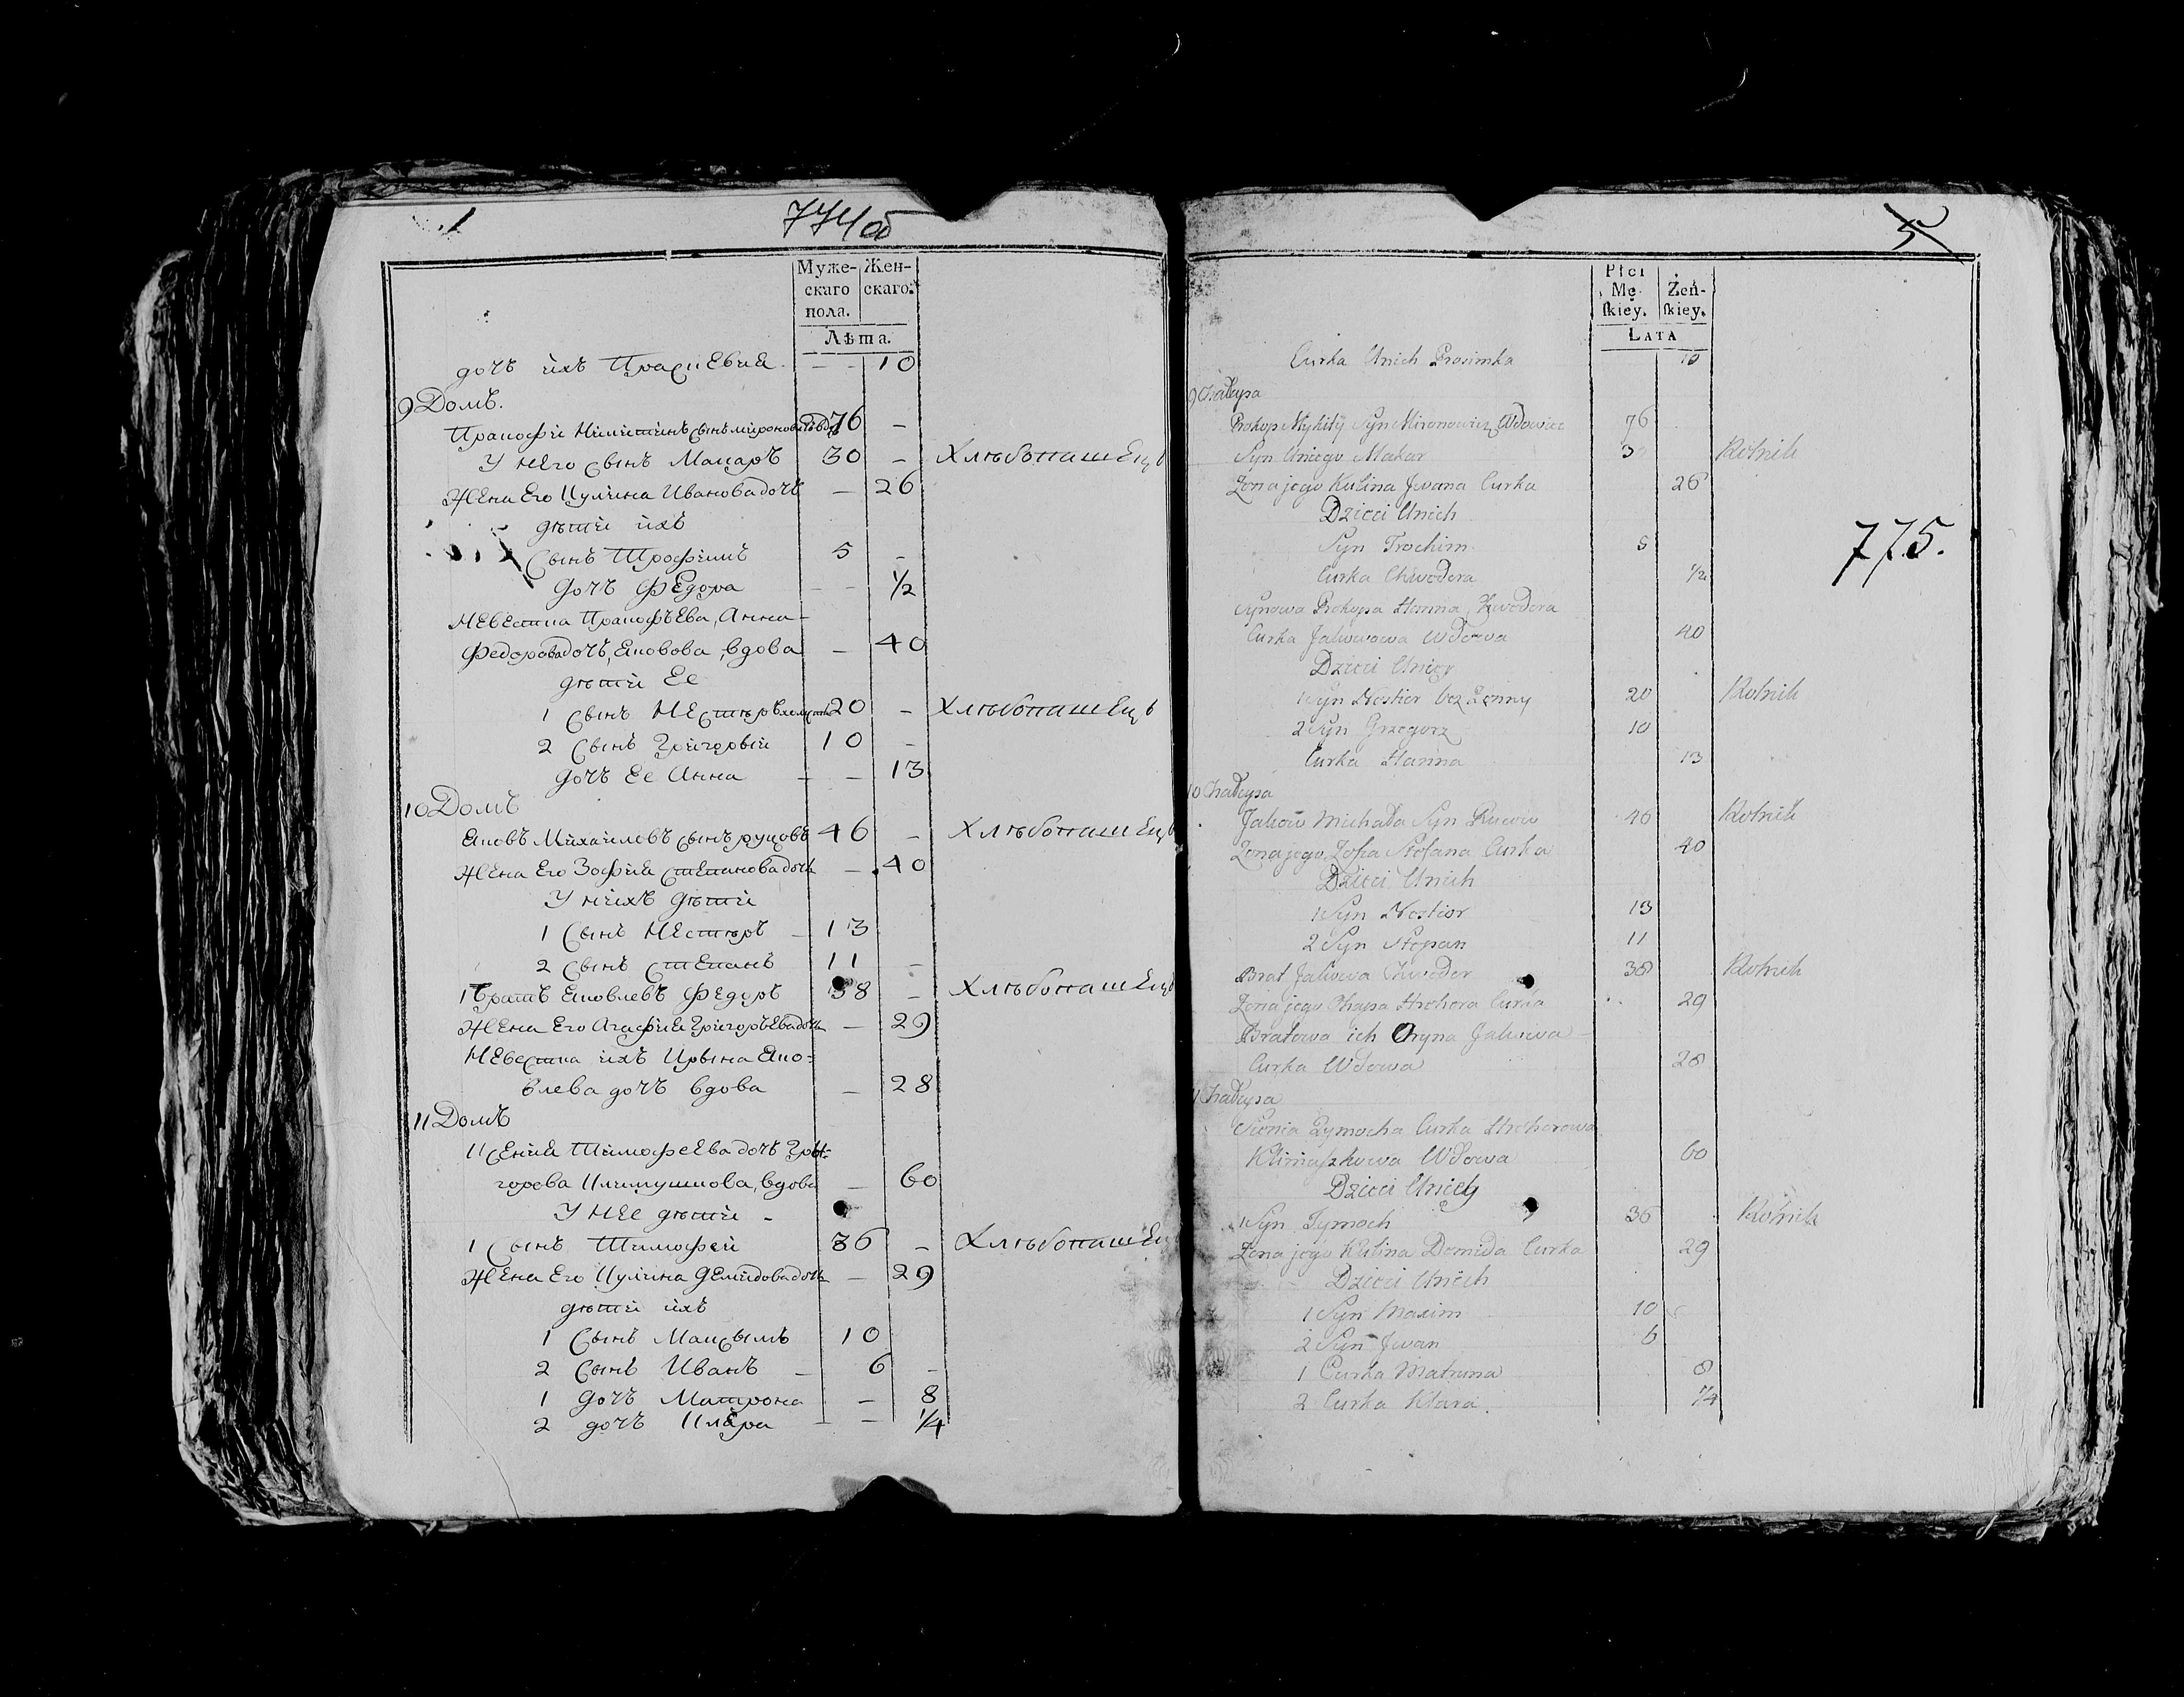 774об
Муже-
скаго
пола.
Жен-
скаго.
Лѣта.
дочъ ихъ Праскевия - - 10
9 Домъ.
Пракофи Никитинъ сынъ мироновичъ 76 -
У него сынъ Макаръ 30 - Хлѣбопашецъ
Жена Его Кулина Иванова дочъ - 26
дѣти ихъ
Сынъ Трофимъ 5 -
Дочъ Федора - - 1/2
Невестка Пракофьева, Анна
Федорова дочъ, Яковова, вдова - 40
дѣти Ее
1 Сынъ Нестѣръ 20 - Хлѣбопашецъ
2 Сынъ Григорий 10 -
дочъ Ее Анна - - 13
10 Домъ
Яковъ Михайловъ сынъ руцовъ 46 - Хлѣбопашецъ
Жена Его Зофия Степанова дочъ - 40
У нихъ дѣти
1 Сынъ Нестѣръ - 13
2 Сынъ Степанъ 11 -
1 братъ Яковлевъ Федоръ 38 - Хлѣбопашецъ
Жена Его Агафия Григорьева дочъ - 29
Невестка ихъ Ирына Яко=
влева дочъ вдова - 28
11 Домъ
Ксения Тимофеева дочъ Гры=
горова Климушкова, вдова - 60
У нее дѣти -
1 Сынъ Тимофей 36 - Хлѣбопашец
Жена Его Кулина Демидова дочъ - 29
дѣти ихъ
1 Сынъ Максымъ 10
2 Сынъ Иванъ - 6 -
1 дочъ Матрона - 8
2 дочъ Клара - - 1/4
5
Płci
Mę-
skiey.
Żeń-
skiey.
Lata
Curka Unich Prosimka 10
9 Chałupa
Prokop Mykity Syn Mironowicz Wdowiec 76
Syn Uniego Makar 30 Rolnik
Zona jego Kulina Jwana Curka 26
Dzieci Unich
Syn Trochim 5
Curka Chwedora 1/2
Synowa Prokopa Hanna Chwedora
Curka Jakowowa Wdowa 40
Dzieci Uniey
1 Syn Nestior bez Zenny 20 Rolnik
2 Syn Grzegorz 10
Curka Hanna 13
10 Chałupa
Jakow Michała Syn Rucow 46 Rolnik
Zona jego Zofia Stefana Curka 40
Dzieci Unich
1 Syn Nestior 13
2 Syn Stepan 11
Brat Jakowa Chwedor 38 Rolnik
Zona jego Ohapa Hrehora Curka 29
Bratowa ich Oryna Jakowa
Curka Wdowa 28
11 Chałupa
Tymocha Curka Hrehorowa
Klimaszkowa Wdowa 60
Dzieci Uniey
1 Syn Tymoch 36 Rolnik
Zona jego Kulina Demida Curka 29
Dzieci Unich
1 Syn Maxim 10
2 Syn Jwan 6
1 Curka Matruna 8
2 Curka Klara. 1/4
775.